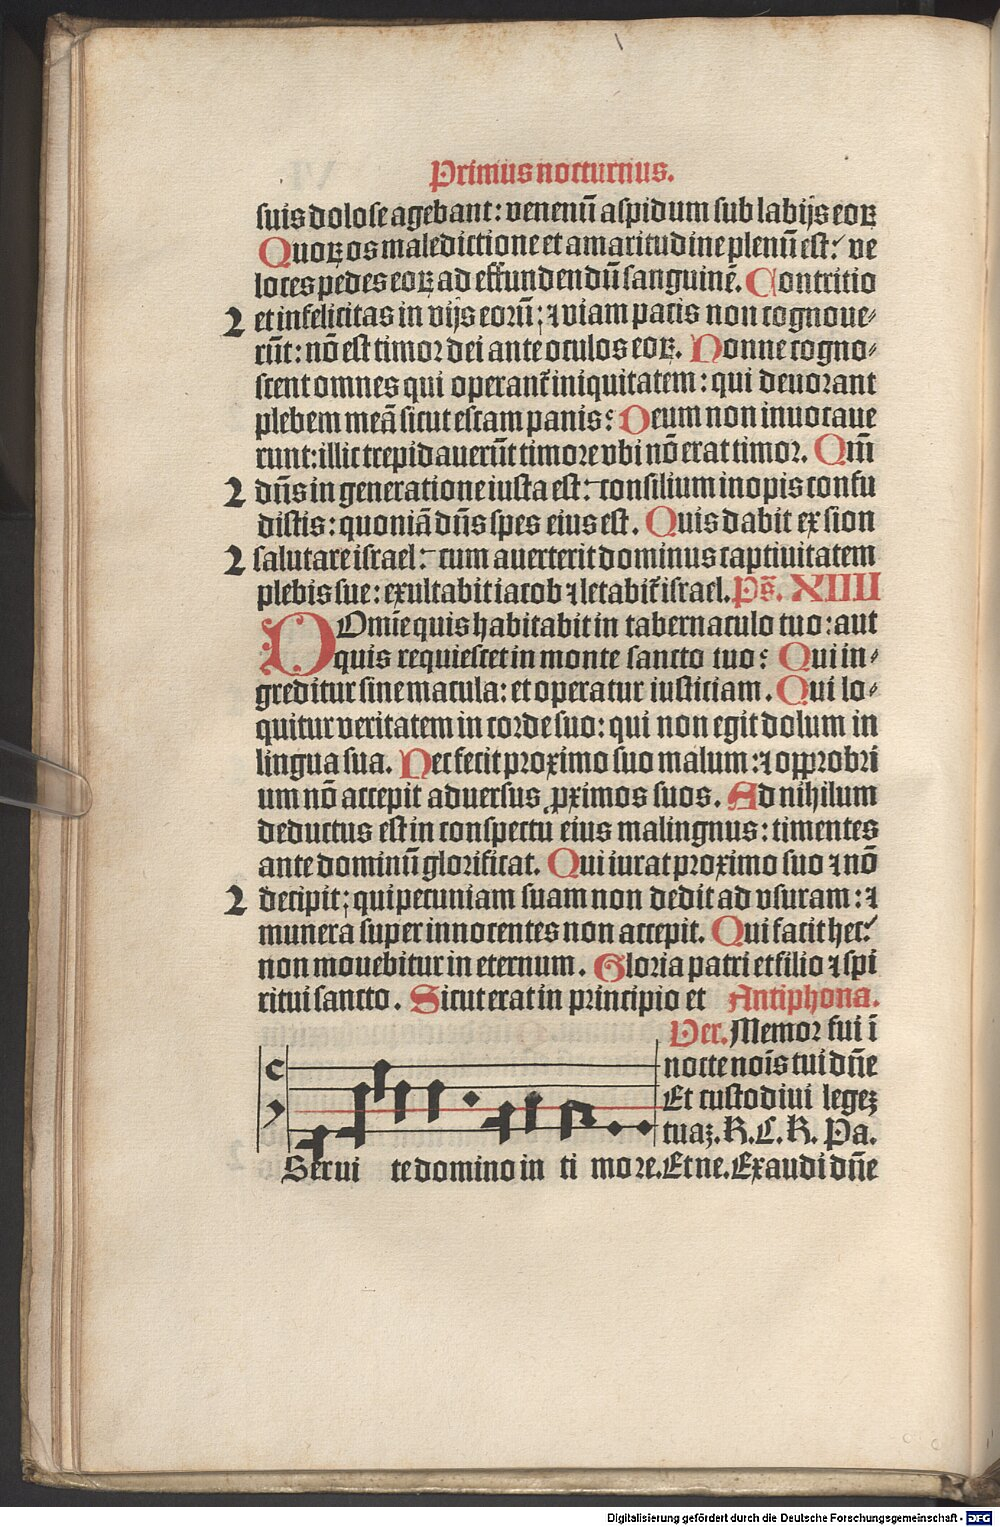 Primus nocturnus.
suis dolose agebant: venenū aspidum sub labijs eoꝝ
Quoꝝ os maledictione et amaritudine plenū est: ve
loces pedes eoꝝ ad effundendū sanguinē. Contritio
2 et infelicitas in vijs eorū; ⁊ viam pacis non cognoue⸗
rūt: nō est timor dei ante oculos eoꝝ. Nonne cogno⸗
scent omnes qui operant̄ iniquitatem: qui deuorant
plebem meā sicut escam panis: Deum non inuocaue
runt: illic trepidauerūt timore vbi nō erat timor. Qm̄
2 dn̄s in generatione iusta est: consilium inopis confu
distis: quoniā dn̄s spes eius est. Quis dabit ex sion
2 salutare israel: cum auerterit dominus captiuitatem
plebis sue: exultabit iacob ⁊ letabit̄ israel. Ps̄. XIIII
DOmīe quis habitabit in tabernaculo tuo: aut
quis requiescet in monte sancto tuo: Qui in⸗
greditur sine macula: et operatur iusticiam. Qui lo⸗
quitur veritatem in corde suo: qui non egit dolum in
lingua sua. Nec fecit proximo suo malum: ⁊ opprobri
um nō accepit aduersus ꝓximos suos. Ad nihilum
deductus est in conspectu eius malingnus: timentes
ante dominū glorificat. Qui iurat proximo suo ⁊ nō
2 decipit; qui pecuniam suam non dedit ad vsuram: ⁊
munera super innocentes non accepit. Qui facit hec:
non mouebitur in eternum. Gloria patri et filio ⁊ spi
ritui sancto. Sicut erat in principio et Antiphona.
Ver. Memor fui ī
nocte noīs tui dn̄e
Et custodiui legeꝫ
tuaꝫ. K. C. K. Pa.
Serui te domino in ti more. Et ne. Exaudi dn̄e
Digitalisierung gefördert durch die Deutsche Forschungsgemeinschaft - DFG